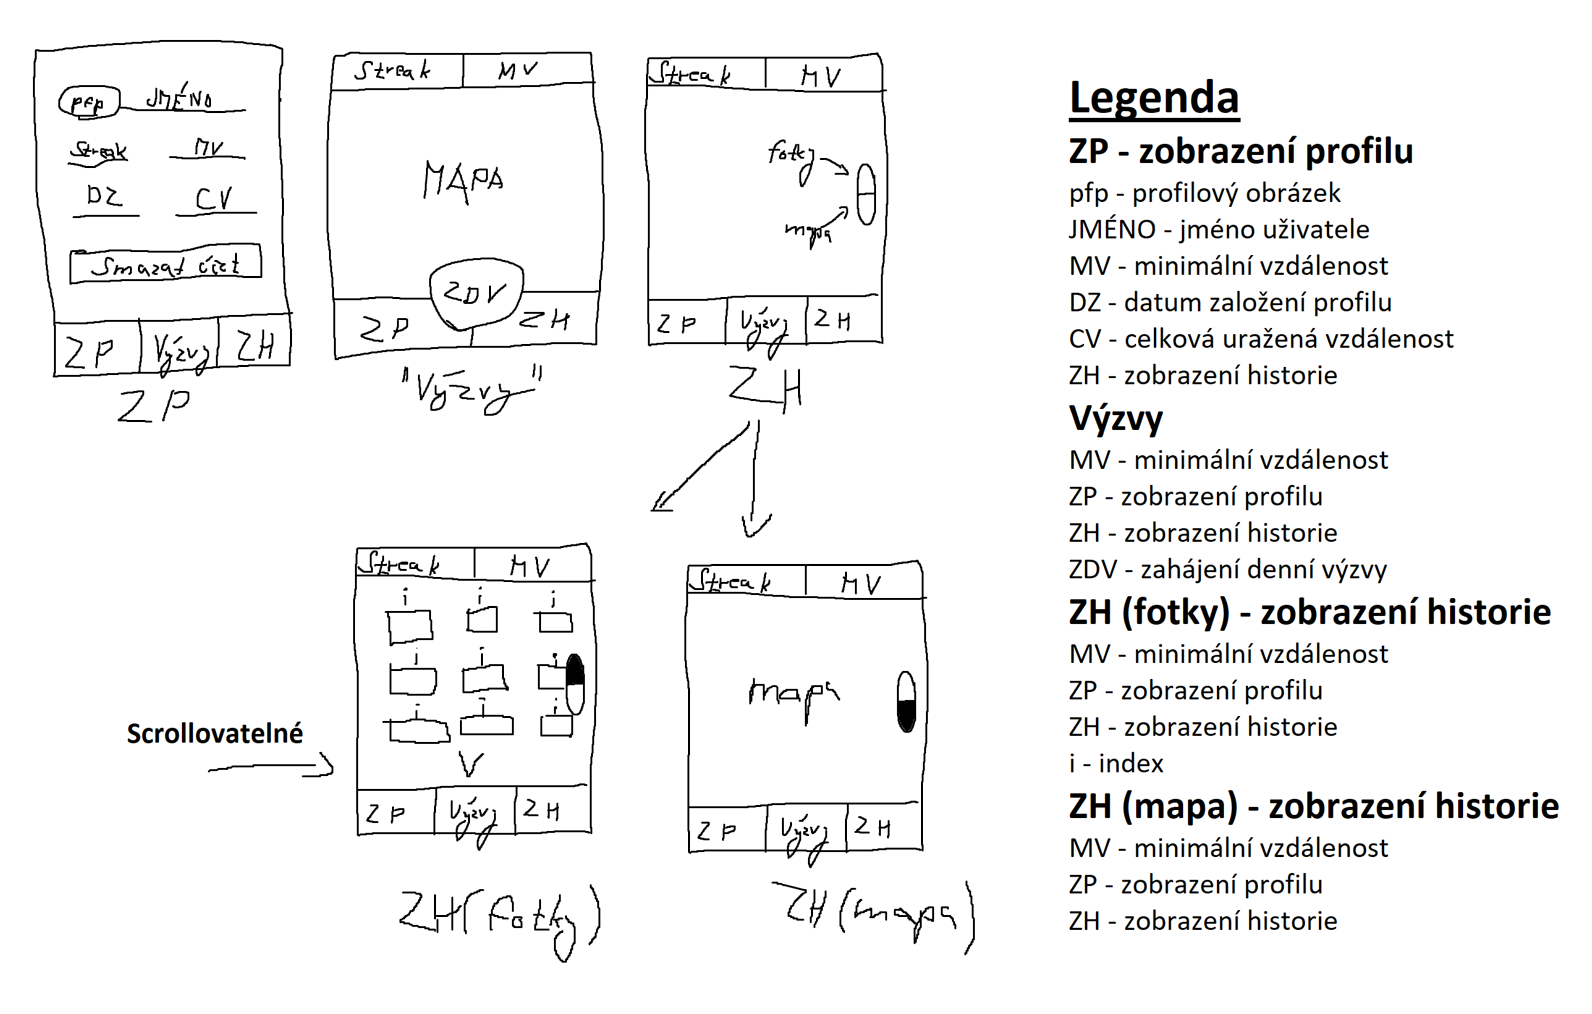 pfp JMÉNO
Streak MV
DZ CV
Smazat účet
ZP Výzvy ZH
ZP
Streak MV
MAPA
ZDV
ZP ZH
"Výzvy"
Streak MV
fotky
mapa
ZP Výzvy ZH
ZH
Scrollovatelné
Streak MV
i i i
i i i
i i i
ZP Výzvy ZH
ZH (fotky)
Streak MV
mapa
ZP Výzvy ZH
ZH (mapa)
Legenda
ZP - zobrazení profilu
pfp - profilový obrázek
JMÉNO - jméno uživatele
MV - minimální vzdálenost
DZ - datum založení profilu
CV - celková uražená vzdálenost
ZH - zobrazení historie
Výzvy
MV - minimální vzdálenost
ZP - zobrazení profilu
ZH - zobrazení historie
ZDV - zahájení denní výzvy
ZH (fotky) - zobrazení historie
MV - minimální vzdálenost
ZP - zobrazení profilu
ZH - zobrazení historie
i - index
ZH (mapa) - zobrazení historie
MV - minimální vzdálenost
ZP - zobrazení profilu
ZH - zobrazení historie